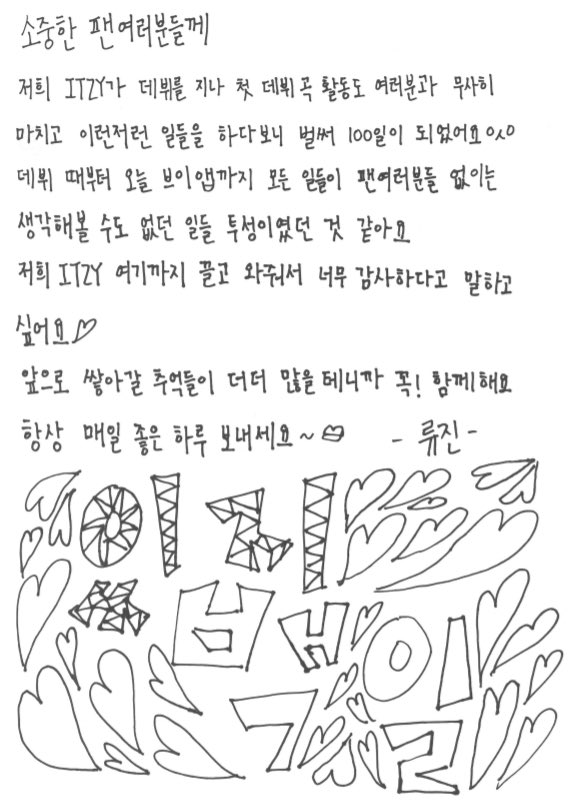 소중한 팬여러분들께
저희 ITZY가 데뷔를 지나 첫 데뷔곡 활동도 여러분과 무사히
마치고 이런저런 일들을 하다보니 벌써 100일이 되었어요ㅇㅅㅇ
데뷔 때부터 오늘 브이앱까지 모든 일들이 팬여러분들 없이는
생각해볼 수도 없던 일들 투성이였던 것 같아요
저희 ITZY 여기까지 끌고 와줘서 너무 감사하다고 말하고
싶어요♡
앞으로 쌓아갈 추억들이 더더 많을 테니까 꼭! 함께해요
항상 매일 좋은 하루 보내세요~ - 류진 -
있지
뿌에이